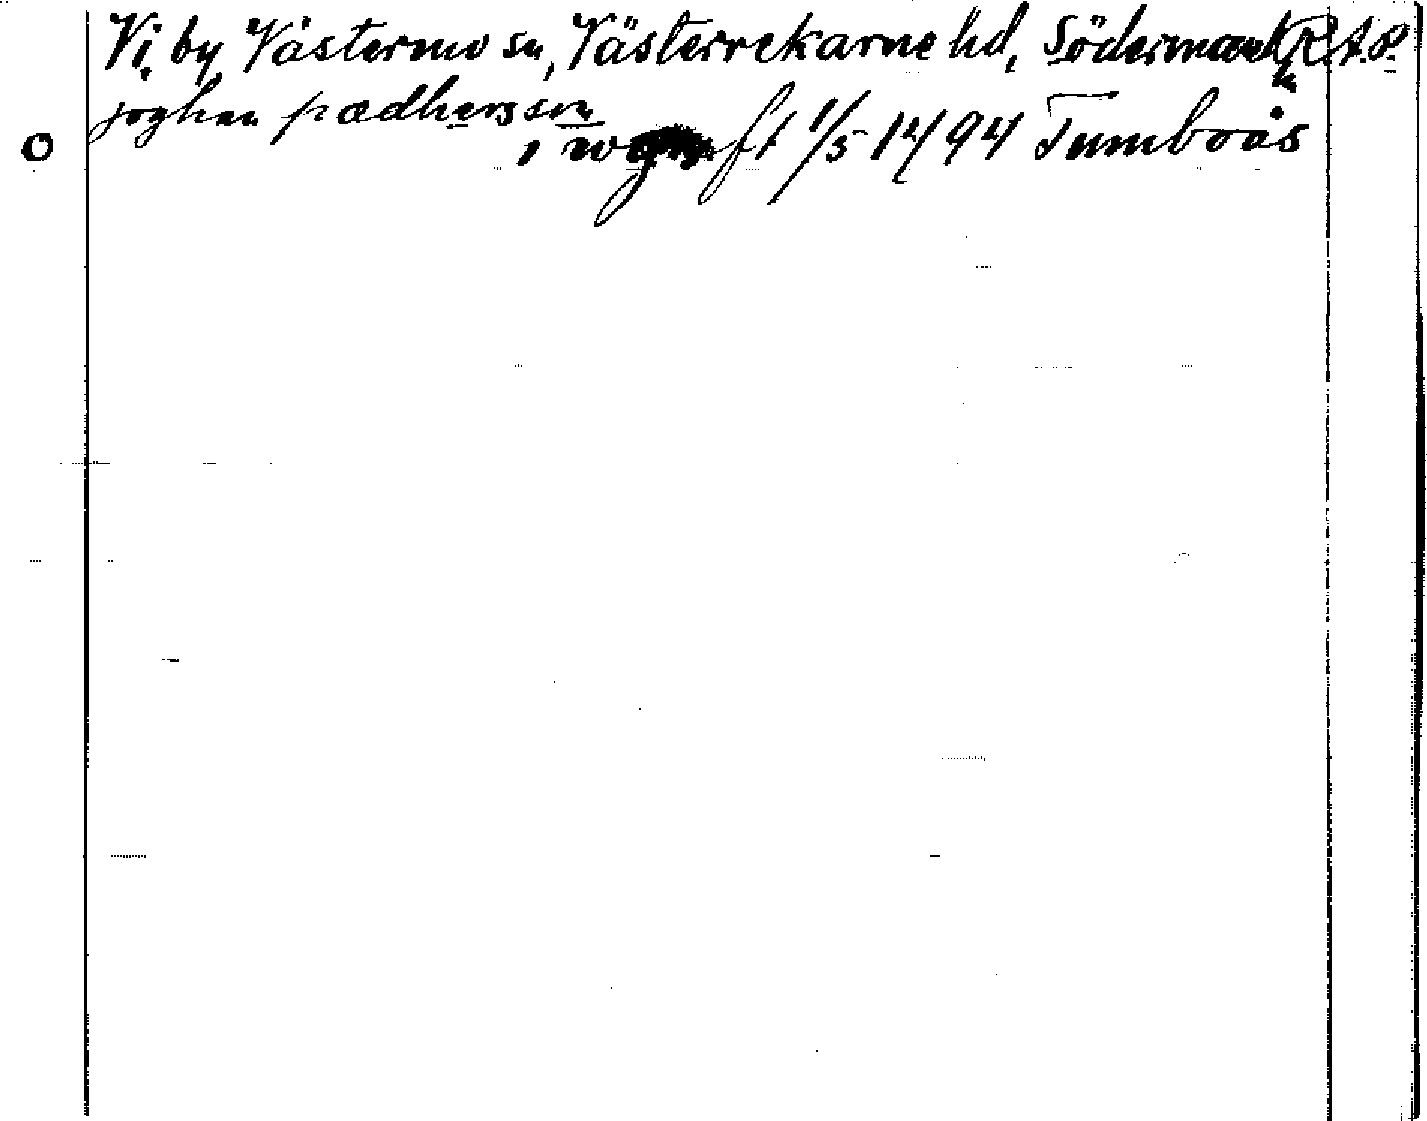 Vi by Västermo sn, Västerrekarne hd, Södermanl R.A.P.
joghan pædhersson
O i w 1/5 1494 Tumboås